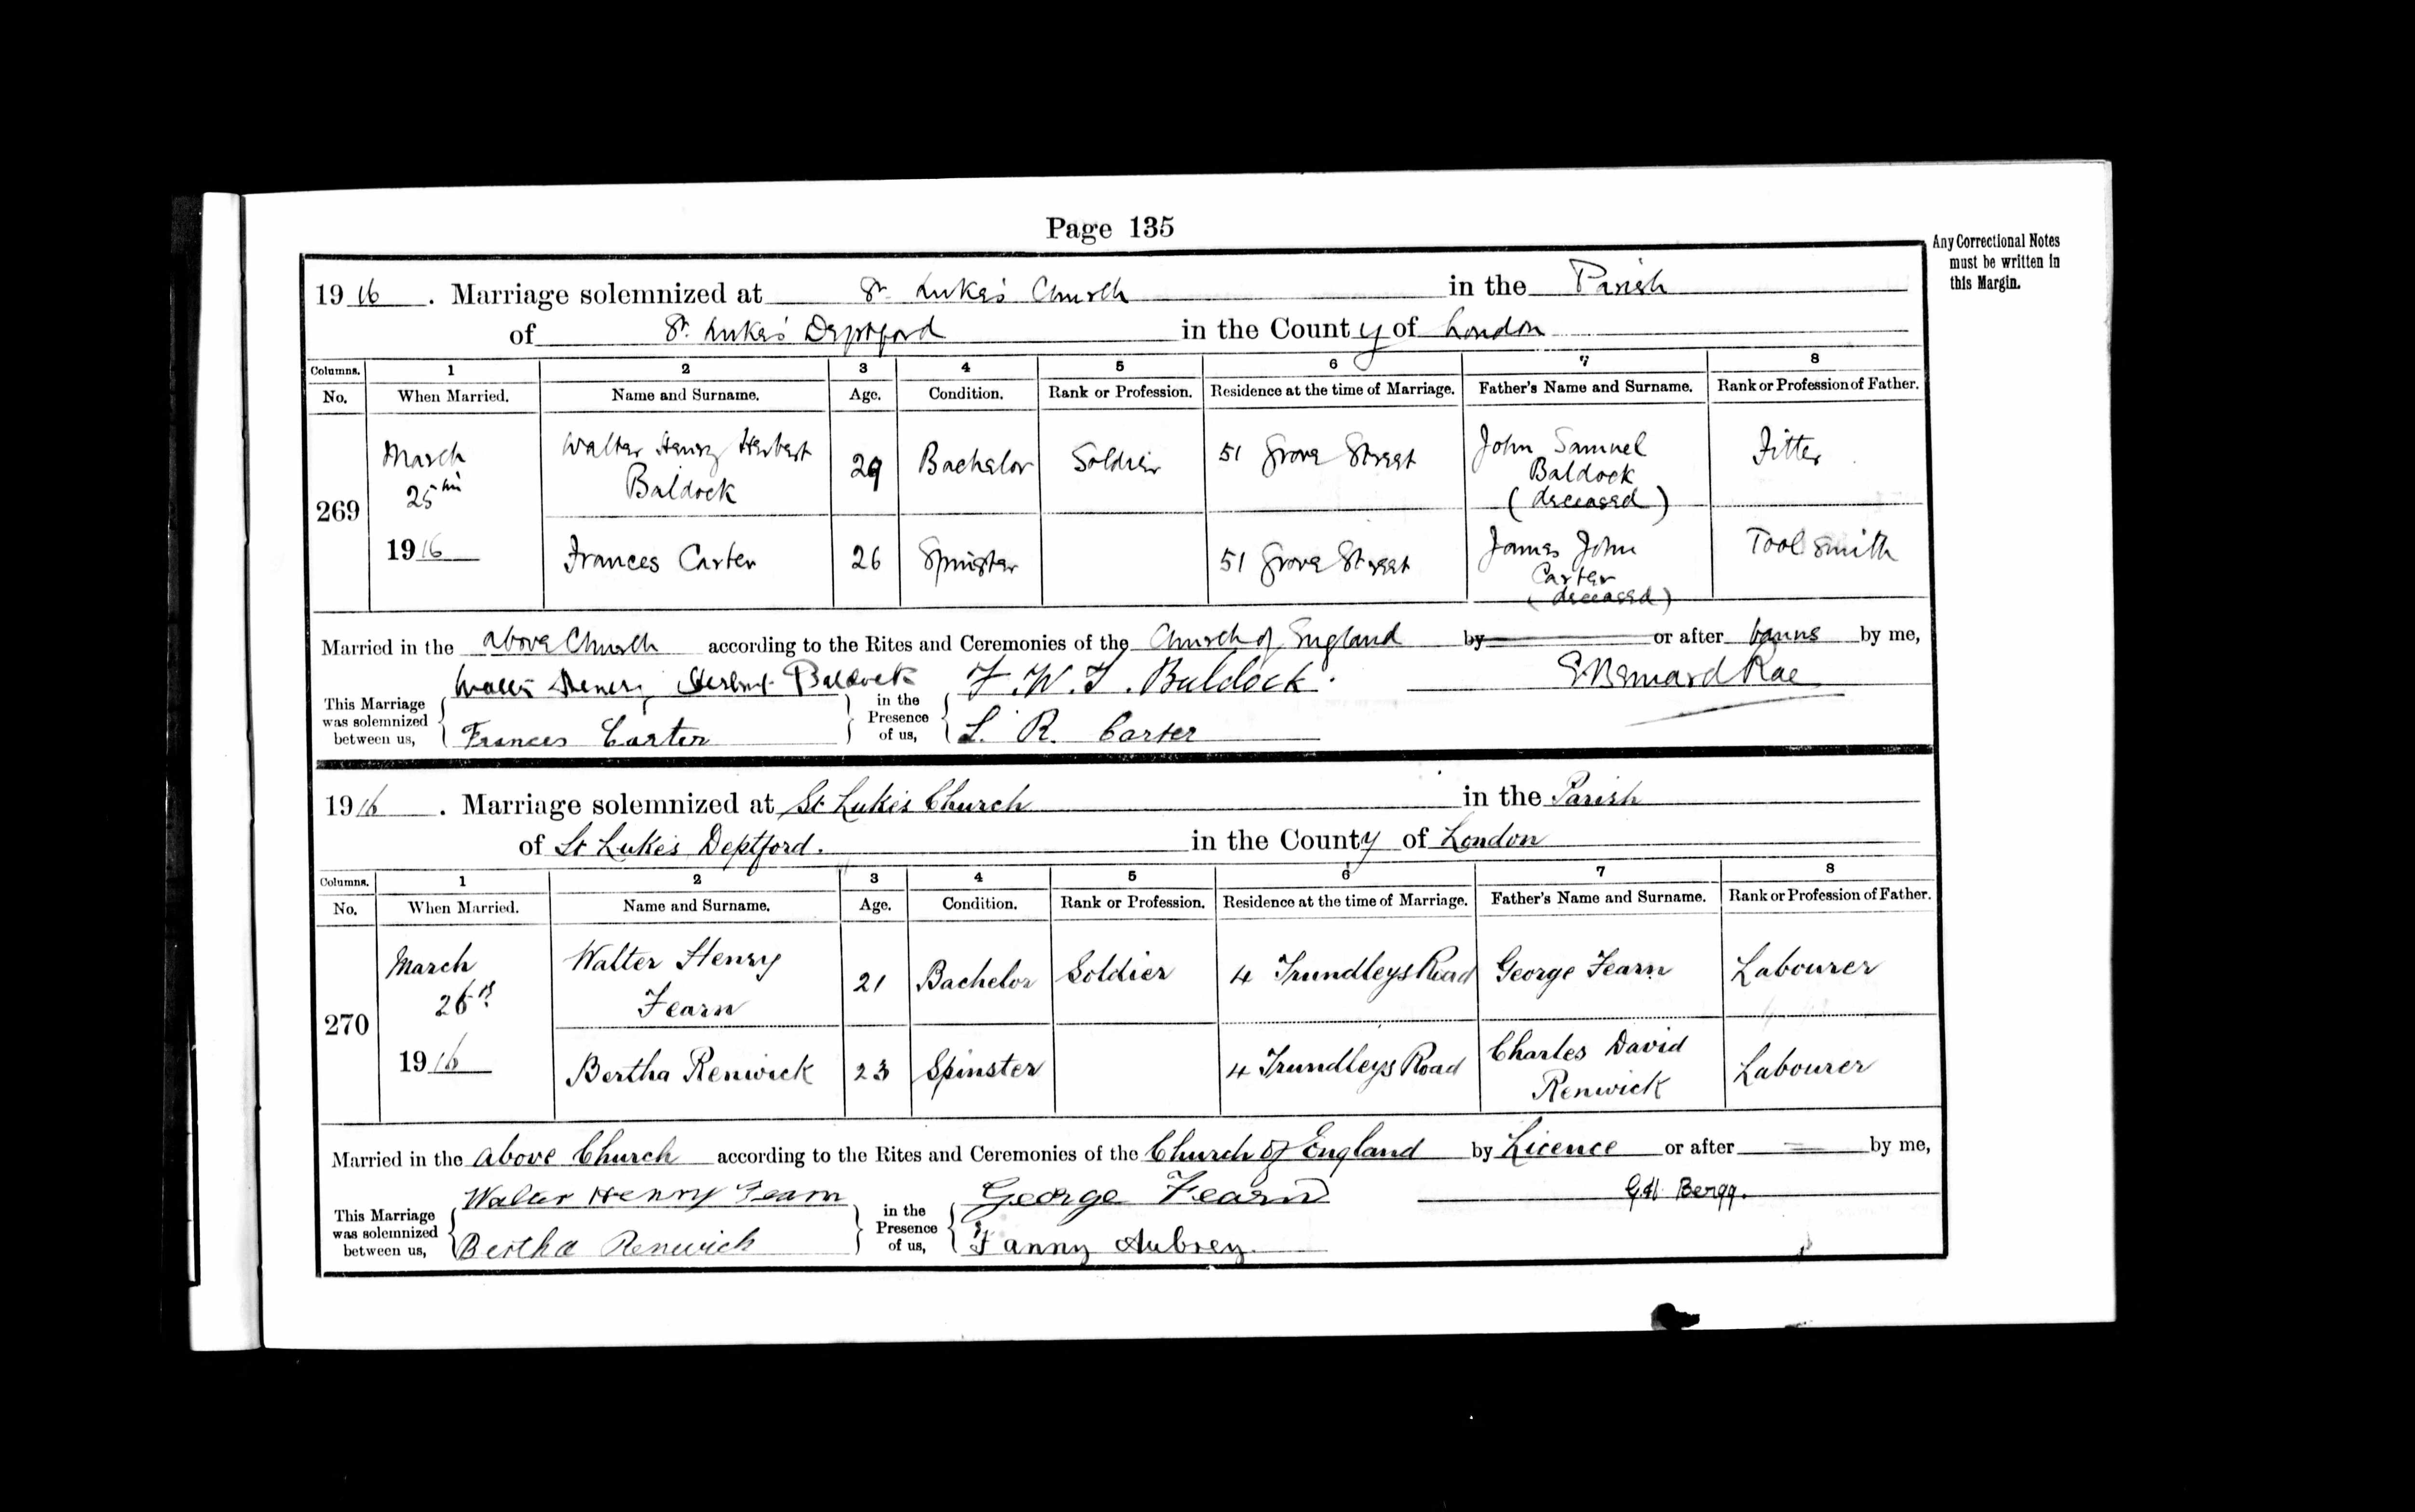 Page 135
Any Correctional Notes
must be written in
this Margin.
1916. Marriage solemnized at St Luke's Church in the Parish
of St. Luke's Deptford in the County of London
Columns. 1 2 3 4 5 6 7 8
No. When Married. Name and Surname. Age. Condition. Rank or Profession. Residence at the time of Marriage. Father's Name and Surname. Rank or Profession of Father.
269 March 25th 1916 Walter Henry Herbert Baldock 29 Bachelor Soldier 51 Grove Street John Samuel Baldock (deceased) Fitter
Frances Carter 26 Spinster 51 Grove Street James John Carter (deceased) Tool Smith
Married in the above Church according to the Rites and Ceremonies of the Church of England by or after banns by me,
This Marriage was solemnized between us, Walter Henry Herbert Baldock in the Presence of us, F. W. J. Baldock. Bernard Rae
Frances Carter L. R. Carter
1916. Marriage solemnized at St Luke's Church in the Parish
of St Luke's Deptford. in the County of London
Columns. 1 2 3 4 5 6 7 8
No. When Married. Name and Surname. Age. Condition. Rank or Profession. Residence at the time of Marriage. Father's Name and Surname. Rank or Profession of Father.
270 March 26th 1916 Walter Henry Fearn 21 Bachelor Soldier 4 Trundleys Road George Fearn Labourer
Bertha Renwick 23 Spinster 4 Trundleys Road Charles David Renwick Labourer
Married in the above Church according to the Rites and Ceremonies of the Church of England by Licence or after by me,
This Marriage was solemnized between us, Walter Henry Fearn in the Presence of us, George Fearn Bergg.
Bertha Renwick Fanny Aubrey